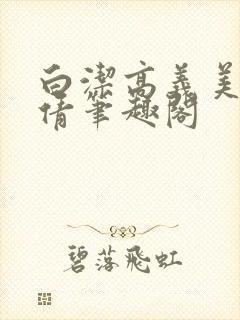 白潔高義美
倩筆趣閣
碧落飛虹